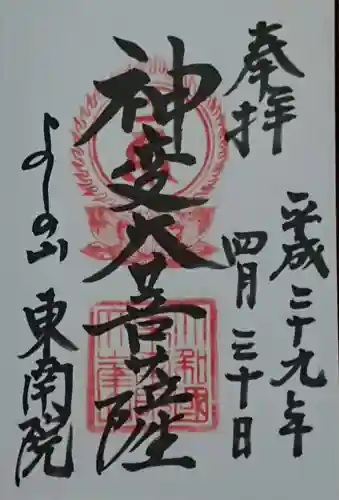 奉拝
平成二十九年
四月三十日
神変大菩薩
よしの山 東南院